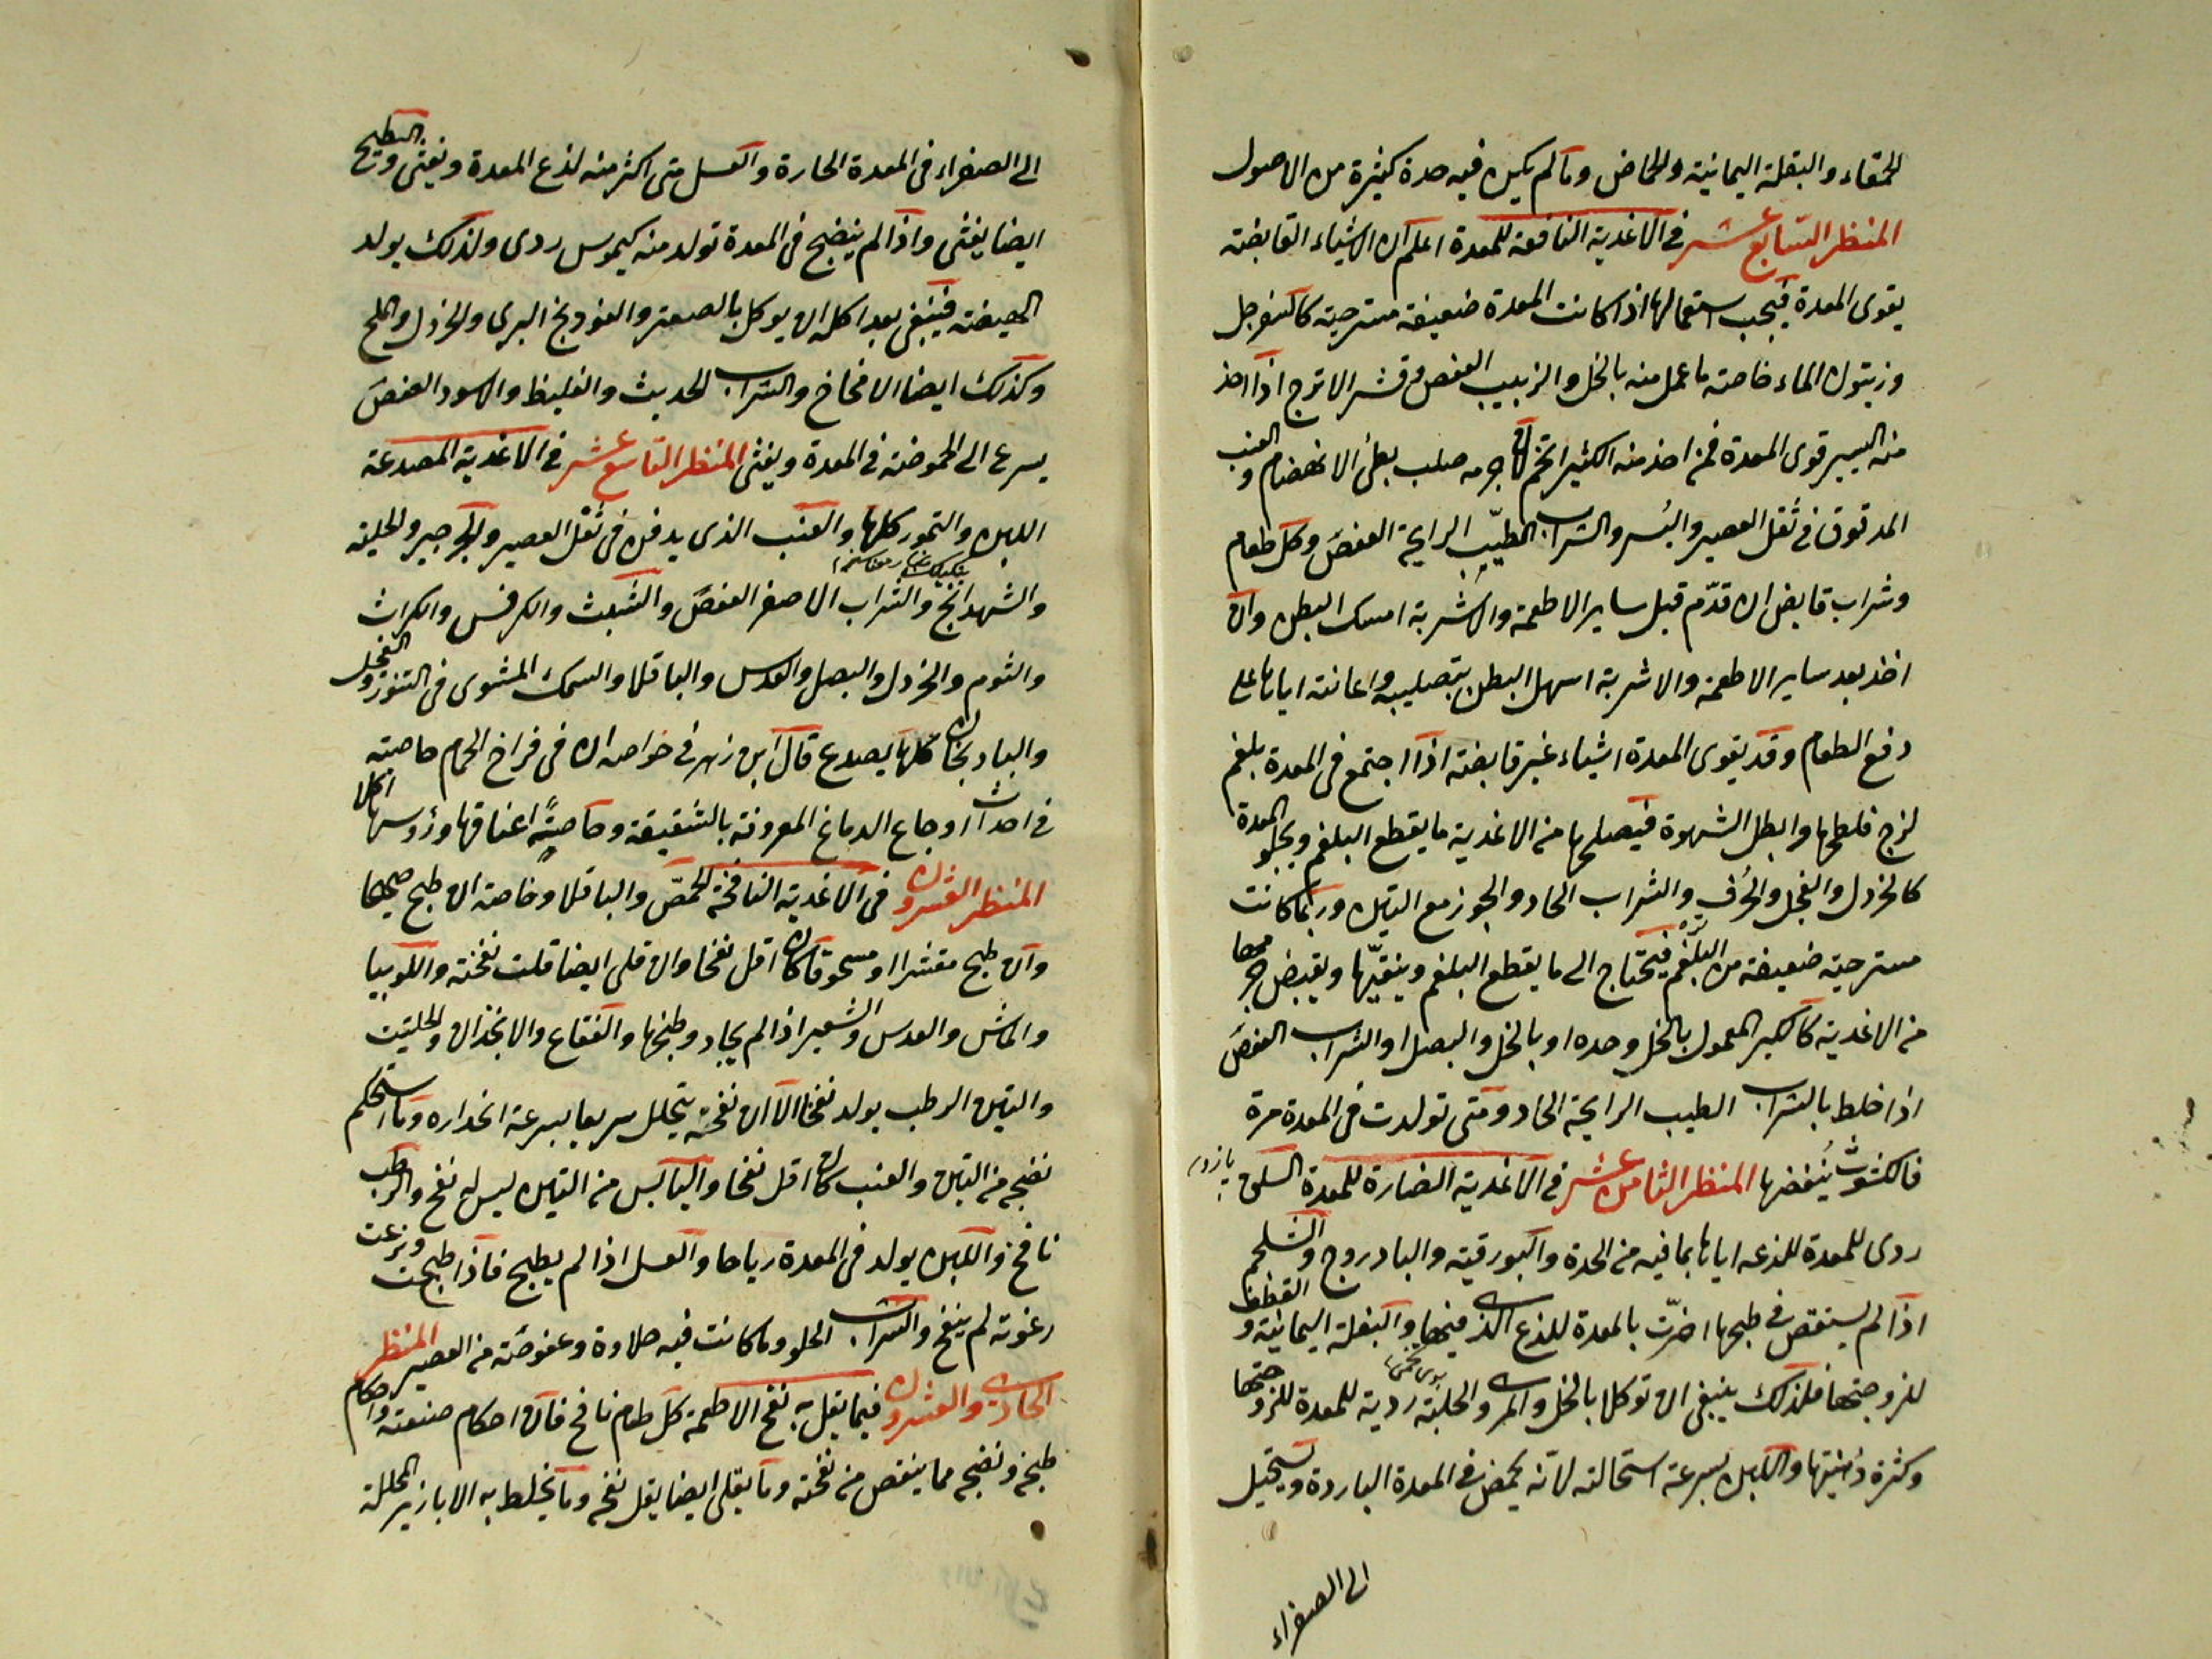 الحمقاء والبقلة اليمانية والحماض وما لم يكن فيه حدة كثيرة من الاصول
المنظر السابع عشر في الاغدية النافعة للمعدة اعلم ان الاشياء القابضة
يقوى المعدة فيجب استعمالها اذا كانت المعدة ضعيفة مسترخية كالسفرجل
وزيتون الماء خاصة ما عمل منه بالخل والزبيب العفص وقشر الاترج اذا اخذ
منه اليسير قوى المعدة فمن اخذ منه الكثير اتخم لان جرمه صلب بطئ الانهضام والعنب
المدقوق في ثفل العصير والبسر والشراب الطيّب الرايحة العفص وكل طعام
وشراب قابض ان قدّم قبل ساير الاطعمة والاشربة امسك البطن وان
اخذ بعد ساير الاطعمة والاشربة اسهل البطن بتصليبه واعانته اياها على
دفع الطعام وقد يقوى المعدة اشياء غير قابضة اذا اجتمع في المعدة بلغم
لزج فلطخها وابطل الشهوة فيصلحها من الاغدية ما يقطع البلغم ويجلو المعدة
كالخردل والفجل والحُرف والشراب الحاد والجوز مع التين وربما كانت
مسترخية ضعيفة من البلغم فيحتاج الى ما يقطع البلغم وينقيّها ويقبض جرمها
من الاغدية كالكبر المعمول بالخل وحده او بالخل والبصل او الشراب العفص
اذا خلط بالشراب الطيب الرايحة الحاد ومتى تولدت في المعدة مرة
فالكشوث يُنفضها المنظر الثامن عشر في الاغدية الضارة للمعدة السلق
ردى للمعدة للذعه اياها بما فيه من الحدة والبورقية والبادروج والشلجم
اذا لم يستقص في طبخها اضرّت بالمعدة للذع الذى فيهما والبقلة اليمانية والقطف
للزوجتهما فلذلك ينبغى ان توكلا بالخل والمرى والحلبة ردية للمعدة للزوجتها
وكثرة دُهنيتها واللبن بسرعة استحالته لانّه يحمض في المعدة الباردة ويستحيل
الى الصفراء
الى الصفراء في المعدة الحارة والعسل متى اكثر منه لذع المعدة ويغثى والبطيخ
ايضا يغثى واذا لم ينضج في المعدة تولد منه كيموس ردى ولذلك يولد
الهيضة فينبغى بعد اكله ان يوكل بالصعتر والفودنج البرى والخردل والملح
وكذلك ايضا الامخاخ والشراب الحديث والغليظ والاسود العفص
يسرع الى الحموضة في المعدة ويغثى المنظر التاسع عشر في الاغدية المصدعة
اللبن والتمور كلها والعنب الذى يدفن في ثفل العصير والجرجير والحلبة
والشهدانج والشراب الاصفر العفص والشبث والكرفس والكراث
والثوم والخردل والبصل والعدس والباقلا والسمك المشوى في التنور والفجل
والبادنجان كلها يصدع قال ابن زهر في خواصه ان في فراخ الحمام خاصية
في احداث اوجاع الدماغ المعروفة بالشقيقة وخاصيةً اعناقها ورؤسها اكلا
المنظر العشرون في الاغدية النافخة الحمّص والباقلا وخاصة ان طبخ صحيحا
وان طبخ مقشرا او مسحوقا كان اقل نفخا وان قلى ايضا قلت نفخته واللوبيا
والماش والعدس والشعير اذا لم يجاد وطبخها والفقاع والانجدان والحلتيت
والتين الرطب يولد نفخا الا ان نفخته يتحلل سريعا بسرعة انحداره وما استحكم
نضجه من التين والعنب كان اقل نفخا واليابس من التين ليس له نفخ والرطب
نافخ واللبن يولد في المعدة رياحا والعسل اذا لم يطبخ فاذا طبخت ونزعت
رغوته لم ينفخ والشراب الحلو وما كانت فيه حلاوة وعفوصة من العصير المنظر
الحادى والعشرون فيما يقل به نفخ الاطعمة كل طعام نافخ فان احكام صنعته واحكام
طبخه ونضجه مما ينقص من نفخته وما يقلى ايضا يقل نفخه وما يخلط به الابازير المحللة